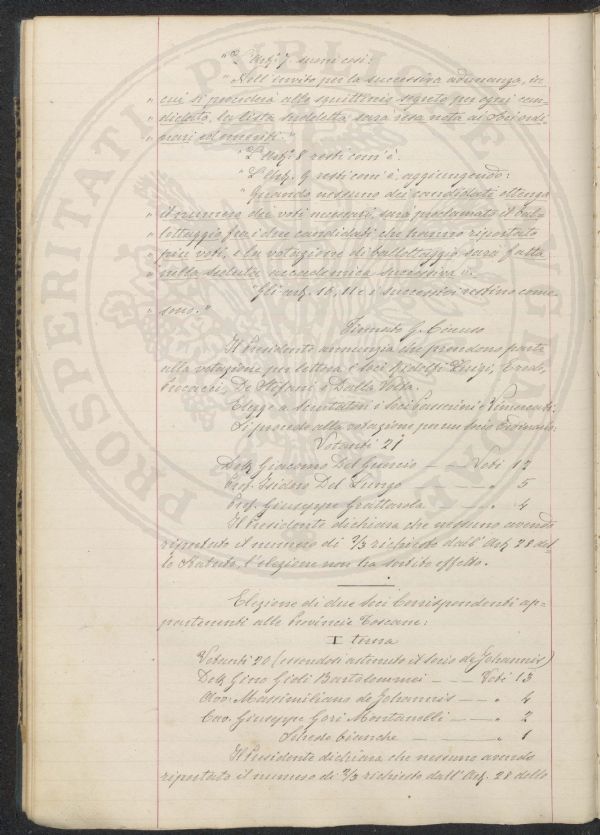 "L'Art.º 7. suoni così:
"Nell'invito per la successiva adunanza, in
" cui si procederà allo squittinio segreto per ogni can-
" didato, la lista suddetta sarà resa nota ai Soci ordi-
" nari ed emeriti."
"L'Art.º 8 resti com'è.
"L'Art. 9 resti com'è, aggiungendo:
"Quando nessuno dei candidati ottenga
" il numero dei voti necessari, sarà proclamato il bal-
" lottaggio fra i due candidati che hanno riportato
" più voti, e la votazione di ballottaggio sarà fatta
" nella seduta accademica successiva".
"Gli art. 10, 11 e i successivi restino come
" sono."
Firmato G. Caruso
Il Presidente annunzia che prendono parte
alla votazione per lettera i Soci Ridolfi Luigi,
De Stefani e Dalla Volta.
Elegge a Scrutatori i Soci Passerini e
Si procede alla votazione per un Socio Ordinario:
Votanti 21
Dott. Giacomo Del Guercio — — Voti 12
Prof. Isidoro Del Lungo — " 5
Prof. Giuseppe Grattarola — " 4
Il Presidente dichiara che nessuno avendo
riportato il numero di 2/3 richiesto dall'Art. 28 del-
lo Statuto, l'elezione non ha sortito effetto.
Elezione di due Soci Corrispondenti ap-
partenenti alle Provincie Toscane:
I terna
Votanti 20 (essendosi astenuto il socio de Johannis)
Dott. Gino Gioli Bartolommei — — Voti 13
Avv. Massimiliano de Johannis — — " 4
Cav. Giuseppe Gori Montanelli — — " 2
Schede bianche — — " 1
Il Presidente dichiara che nessuno avendo
riportato il numero di 2/3 richiesto dall'Art. 28 dello
PROSPERITATI PUBLICAE AUGENDAE